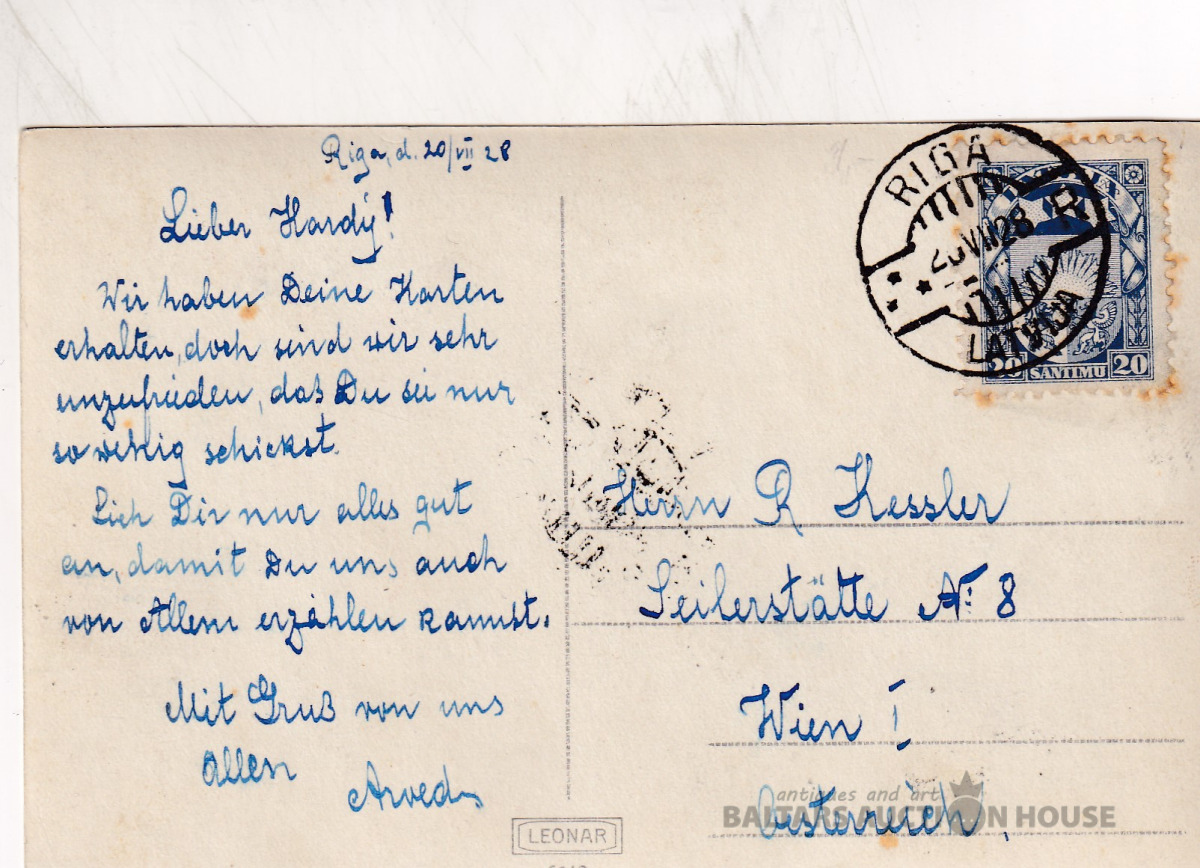 Riga, d. 20/VII 28
Lieber Hardy!
Wir haben Deine Karten
erhalten, doch sind wir sehr
unzufrieden, das Du sie nur
so wenig schickst.
Sieh Dir nur alles gut
an, damit Du uns auch
von Allem erzählen kannst.
Mit Gruß von uns
Allen
Arved
RIGA
VII 28
R
LATVIJA
20 SANTIMU 20
Herrn R Kessler
Seilerstätte No 8
Wien I
Oesterreich,
antiques and art
BALTARS AUCTION HOUSE
LEONAR